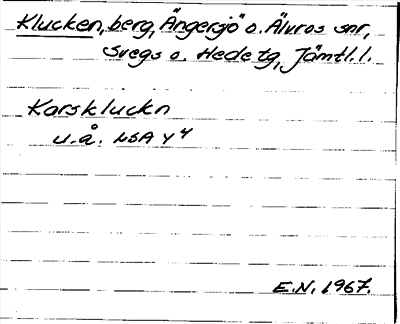 Klucken, berg, Ängersjö o. Älvros snr,
Svegs o. Hede tg, Jämtl. l.
Korskluckn
u.å. LSA Y 4
E.N. 1967.